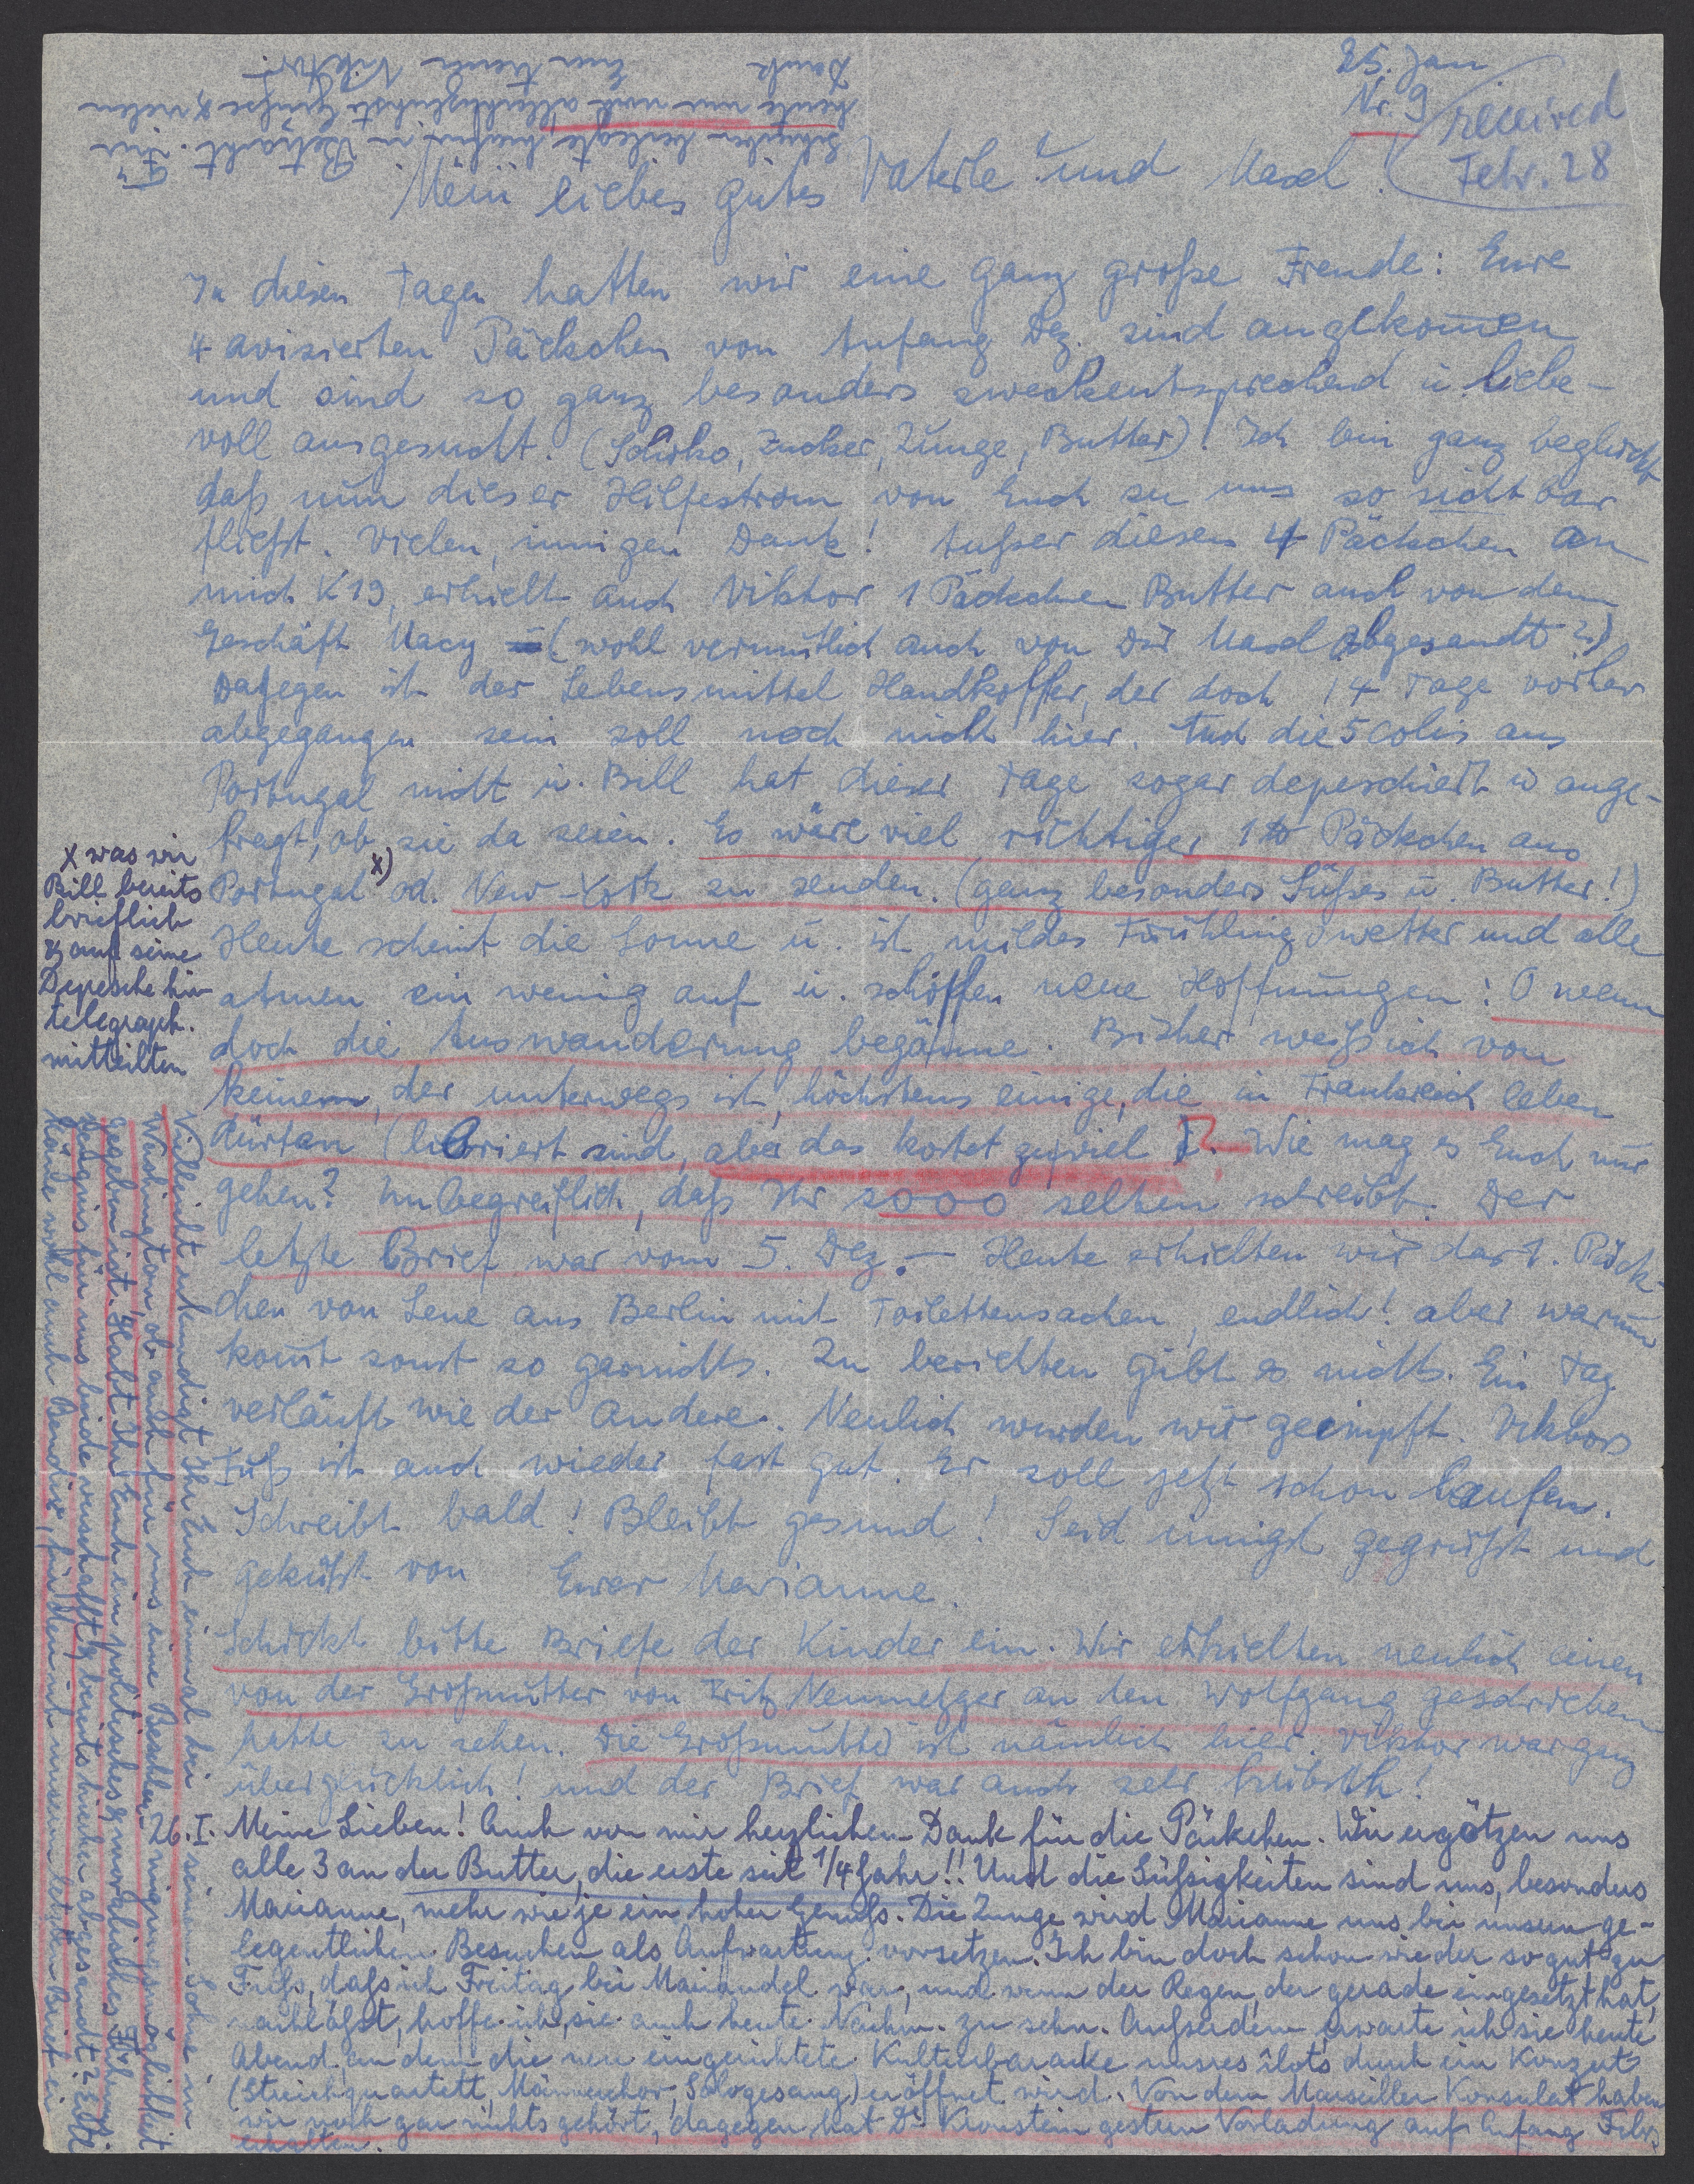 25. Jan.
Nr. 9
received
Febr. 28
Mein liebes gutes Vaterle und Masel!
In diesen Tagen hatten wir eine ganz große Freude: Eure
4 avisierten Päckchen von Anfang Dez. sind angekom̄en
und sind so ganz besonders zweckentsprechend u. liebe-
voll ausgesucht. (Schoko, Zucker, Zunge, Butter)! Ich bin ganz beglückt
daß nun dieser Hilfestrom von Euch zu uns so sichtbar
fließt. Vielen, innigen Dank! Außer diesen 4 Päckchen an
mich K 19, erhielt auch Viktor 1 Päckchen Butter auch von dem
Geschäft Macy (wohl vermutlich auch von Dir Masel abgesandt?)
Dagegen ist der Lebensmittel Handkoffer, der doch 14 Tage vorher
abgegangen sein soll noch nicht hier. Auch die 5 Colis aus
Portugal nicht u. Bill hat dieser Tage sogar depeschiert u ange-
fragt, ob sie da seien. Es wäre viel richtiger 1 Päckchen aus
Portugal x) od. New-York zu senden. (ganz besonders Süßes u. Butter!)
Heute scheint die Sonne u. ist mildes Frühlingswetter und alle
atmen ein wenig auf u. schöpfen neue Hoffnungen: O wenn
doch die Auswanderung begänne. Bisher weiß ich von
keinem, der unterwegs ist, höchstens einige, die in Frankreich leben
dürfen (liberiert sind, aber das kostet zuviel). Wie mag es Euch nur
gehen? Unbegreiflich, daß Ihr sooo selten schreibt. Der
letzte Brief war vom 5. Dez. – Heute erhielten wir das 1. Päck-
chen von Lene aus Berlin mit Toilettensachen, endlich! aber warum
kom̄t sonst so garnichts. Zu berichten gibt es nichts. Ein Tag
verläuft wie der Andere. Neulich wurden wir geimpft. Viktors
Fuß ist auch wieder fast gut. Er soll jetzt schon laufen.
Schreibt bald! Bleibt gesund! Seid innigst gegrüßt und
geküßt von Eurer Marianne.
Schickt bitte Briefe der Kinder ein. Wir erhielten neulich einen
von der Großmutter von Fritz Neumetzger an den Wolfgang geschrieben
hatte zu sehen. Die Großmutter ist nämlich hier. Viktor war ganz
überglücklich! und der Brief war auch sehr hübsch!
26. I. Meine Lieben! Auch von mir herzlichen Dank für die Päckchen. Wir ergötzen uns
alle 3 an der Butter, die erste seit 1/4 Jahr!! Und die Süßigkeiten sind uns, besonders
Marianne, mehr wie je ein hoher Genuß. Die Zunge wird Marianne uns bei unsern ge-
legentlichen Besuchen als Aufwartung vorsetzen. Ich bin doch schon wieder so gut zu
Fuß, daß ich Freitag bei Mariandel war, und wenn der Regen, der gerade eingesetzt hat,
nachläßt, hoffe ich, sie auch heute Nachm. zu sehn. Außerdem erwarte ich sie heute
Abend, an dem die neu eingerichtete Kulturbaracke unsres îlots durch ein Konzert
(Streichquartett, Männerchor, Sologesang) eröffnet wird. Von dem Marseiller Konsulat haben
wir noch gar nichts gehört, dagegen hat Dr. Kronstein gestern Vorladung auf Anfang Febr.
erhalten.
x was wir
Bill bereits
brieflich
& auf seine
Depesche hin
telegraph.
mitteilten
Vielleicht erkundigt Ihr Euch einmal bei seinem Sohne in
Washington, ob auch für uns eine Beschleunigungsmöglichkeit
gegeben ist. Habt Ihr Euch ein politisches & moralisches
Zeugnis für uns beide verschafft & bereits hierher abgesandt? Edel
könnte wohl auch, für den ich meinem letzten Brief ein
Schreiben beilegte hiefür in Betracht. Für
heute nur noch allerherzlichste Grüße & vielen
Dank
Euer treuer Viktor.